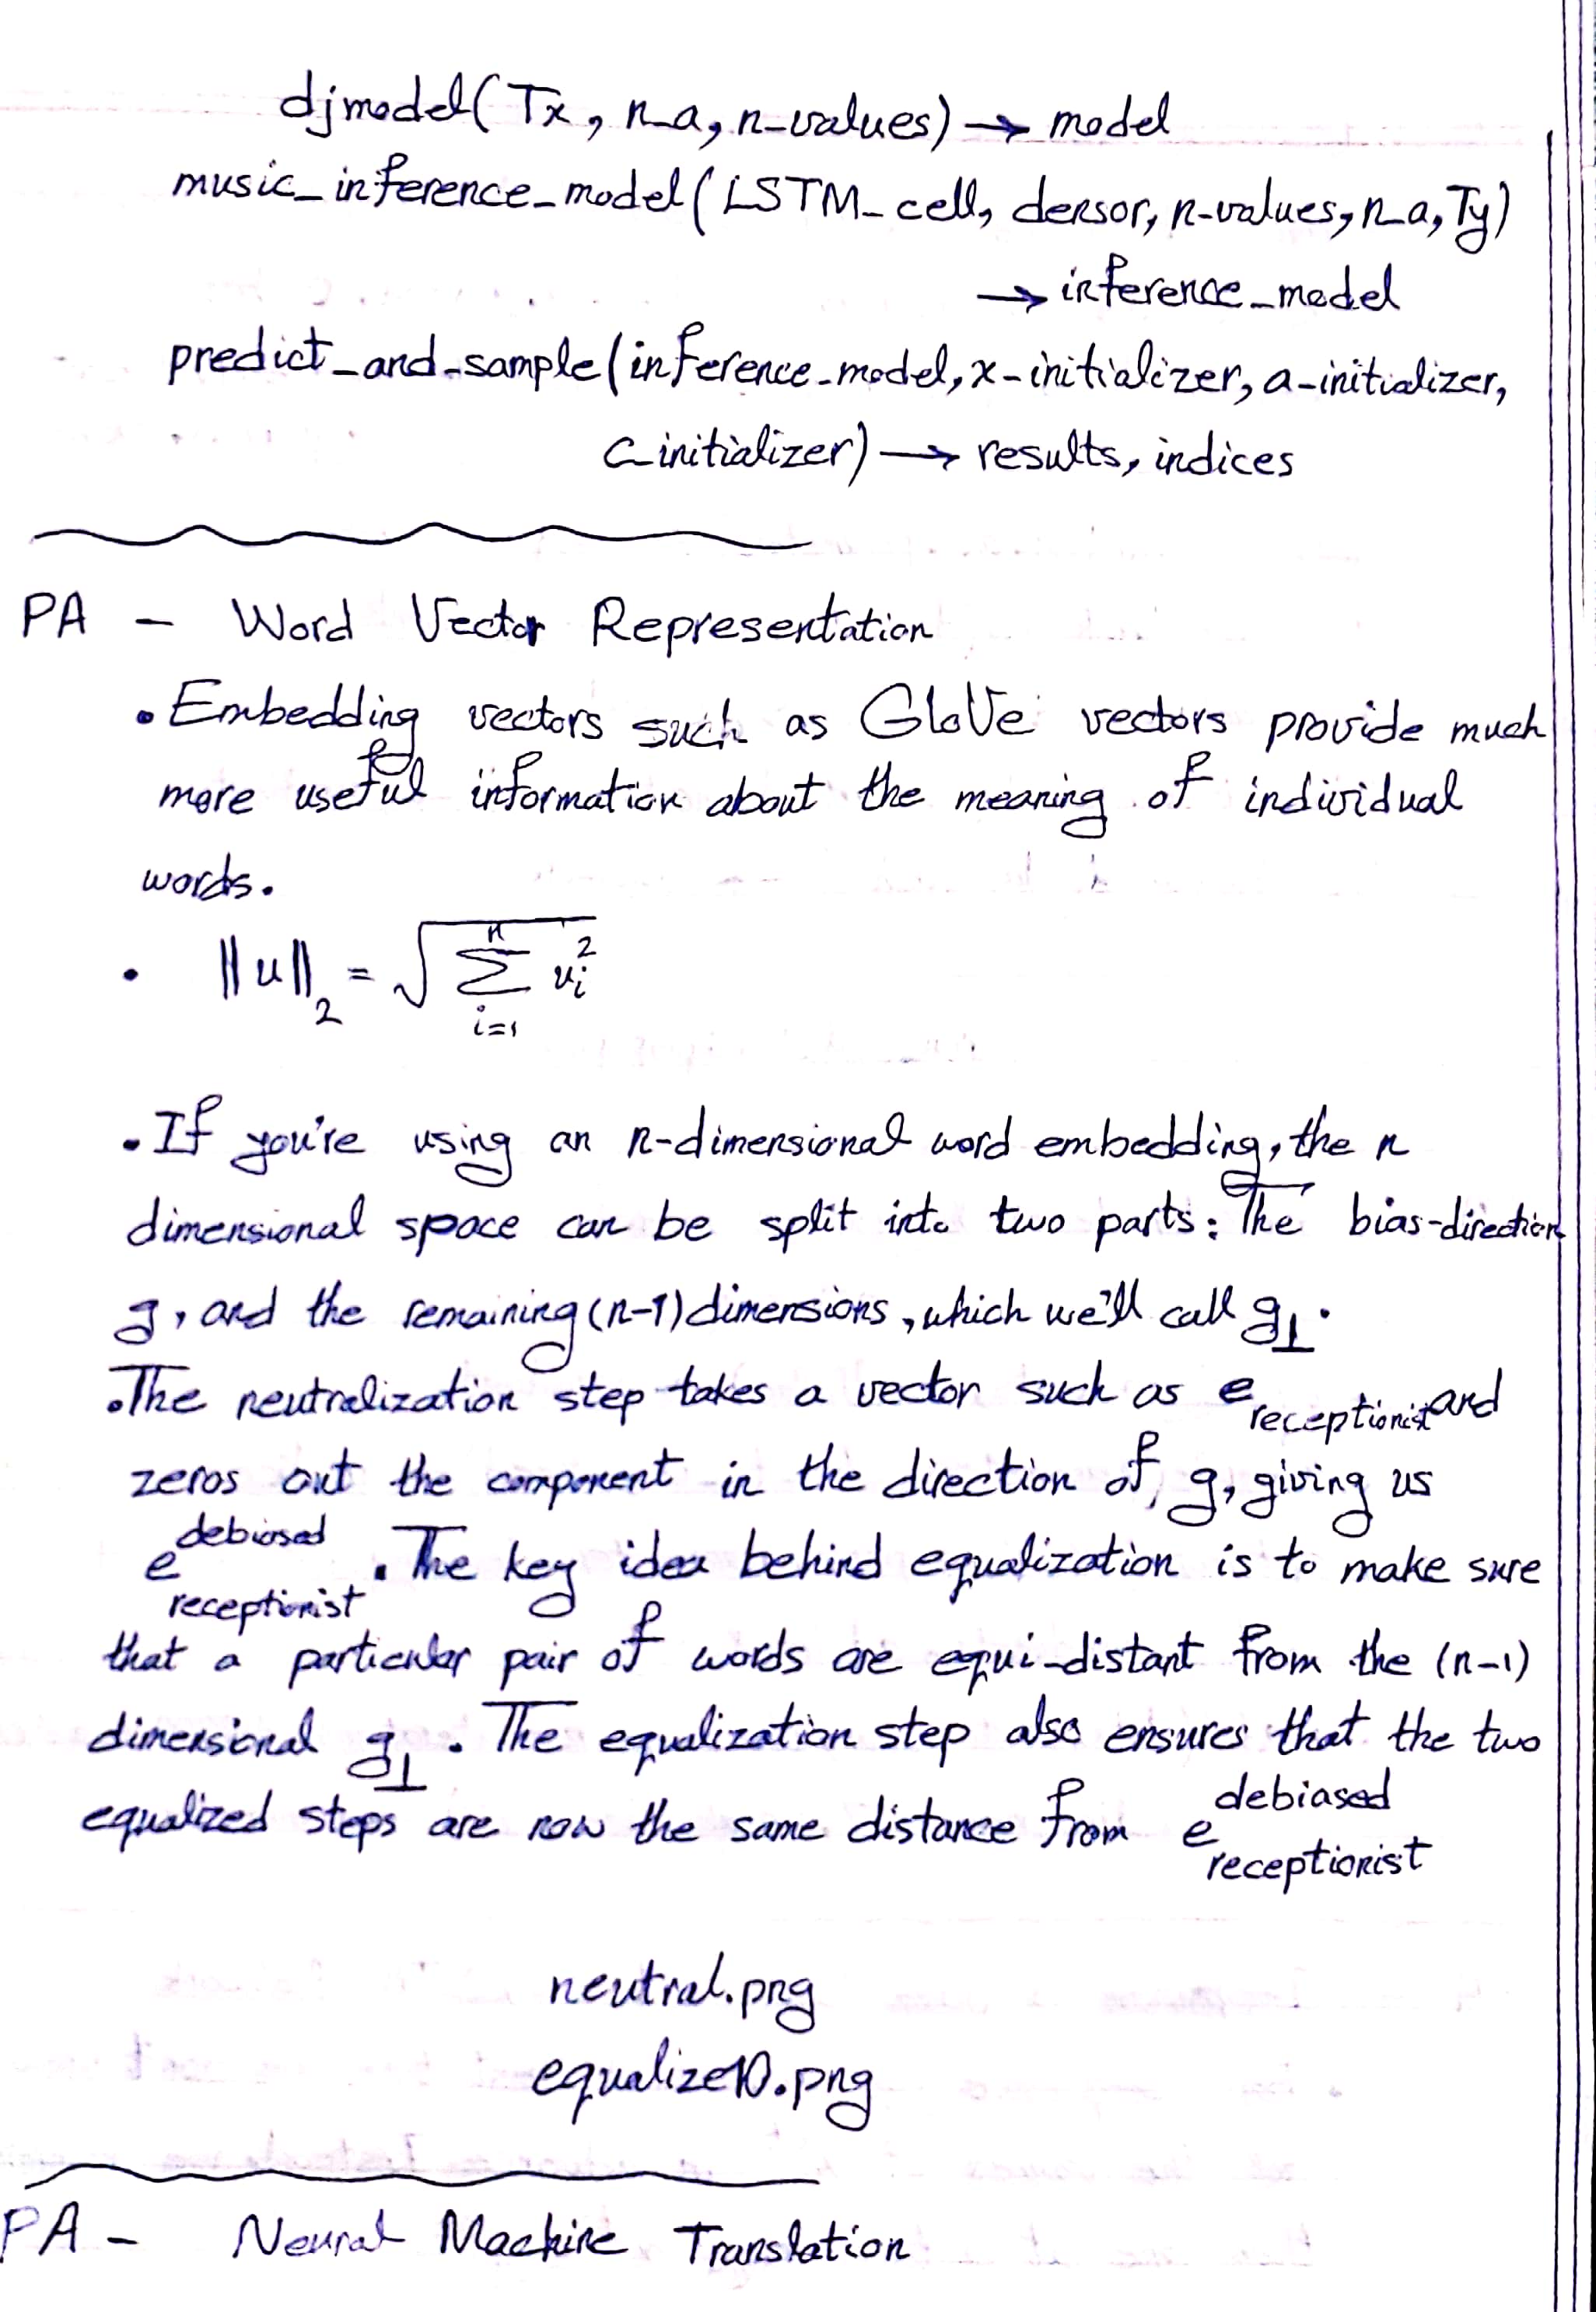 djmodel(Tx, n_a, n-values) → model
music_inference_model(LSTM_cell, densor, n-values, n_a, Ty)
→ inference_model
predict_and_sample(inference_model, x-initializer, a-initializer,
c_initializer) → results, indices
PA - Word Vector Representation
• Embedding vectors such as GloVe vectors provide much
more useful information about the meaning of individual
words.
• ||u||₂ = √(Σᵢ₌₁ⁿ uᵢ²)
• If you're using an n-dimensional word embedding, the n
dimensional space can be split into two parts: The bias-direction
g, and the remaining (n-1) dimensions, which we'll call g⊥.
• The neutralization step takes a vector such as e_receptionist and
zeros out the component in the direction of g, giving us
e_receptionist^debiased. The key idea behind equalization is to make sure
that a particular pair of words are equi-distant from the (n-1)
dimensional g⊥. The equalization step also ensures that the two
equalized steps are now the same distance from e_receptionist^debiased
neutral.png
equalize10.png
PA - Neural Machine Translation